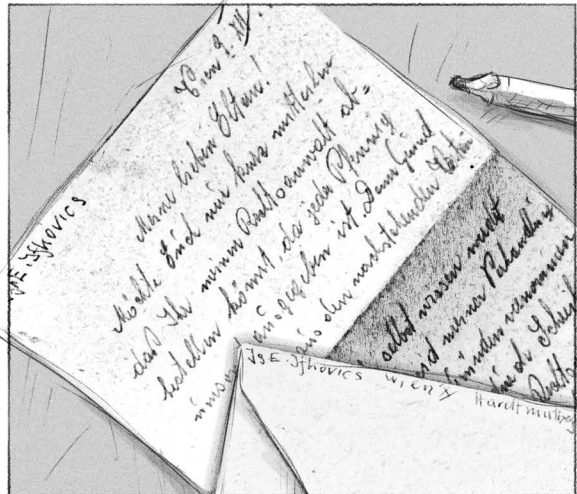 J&E. Ifkovics
9. XII.
Meine lieben Eltern!
Möchte Euch nur kurz mitteilen
daß Ihr meinen Rechtsanwalt ab-
bestellen könnt, da jeder Pfennig
ausgegeben ist. Den Grund
aus den nachstehenden
selbst wissen nicht
meiner Behandlung
vernommen
J&E. Ifkovics Wien X Hardtmuthg